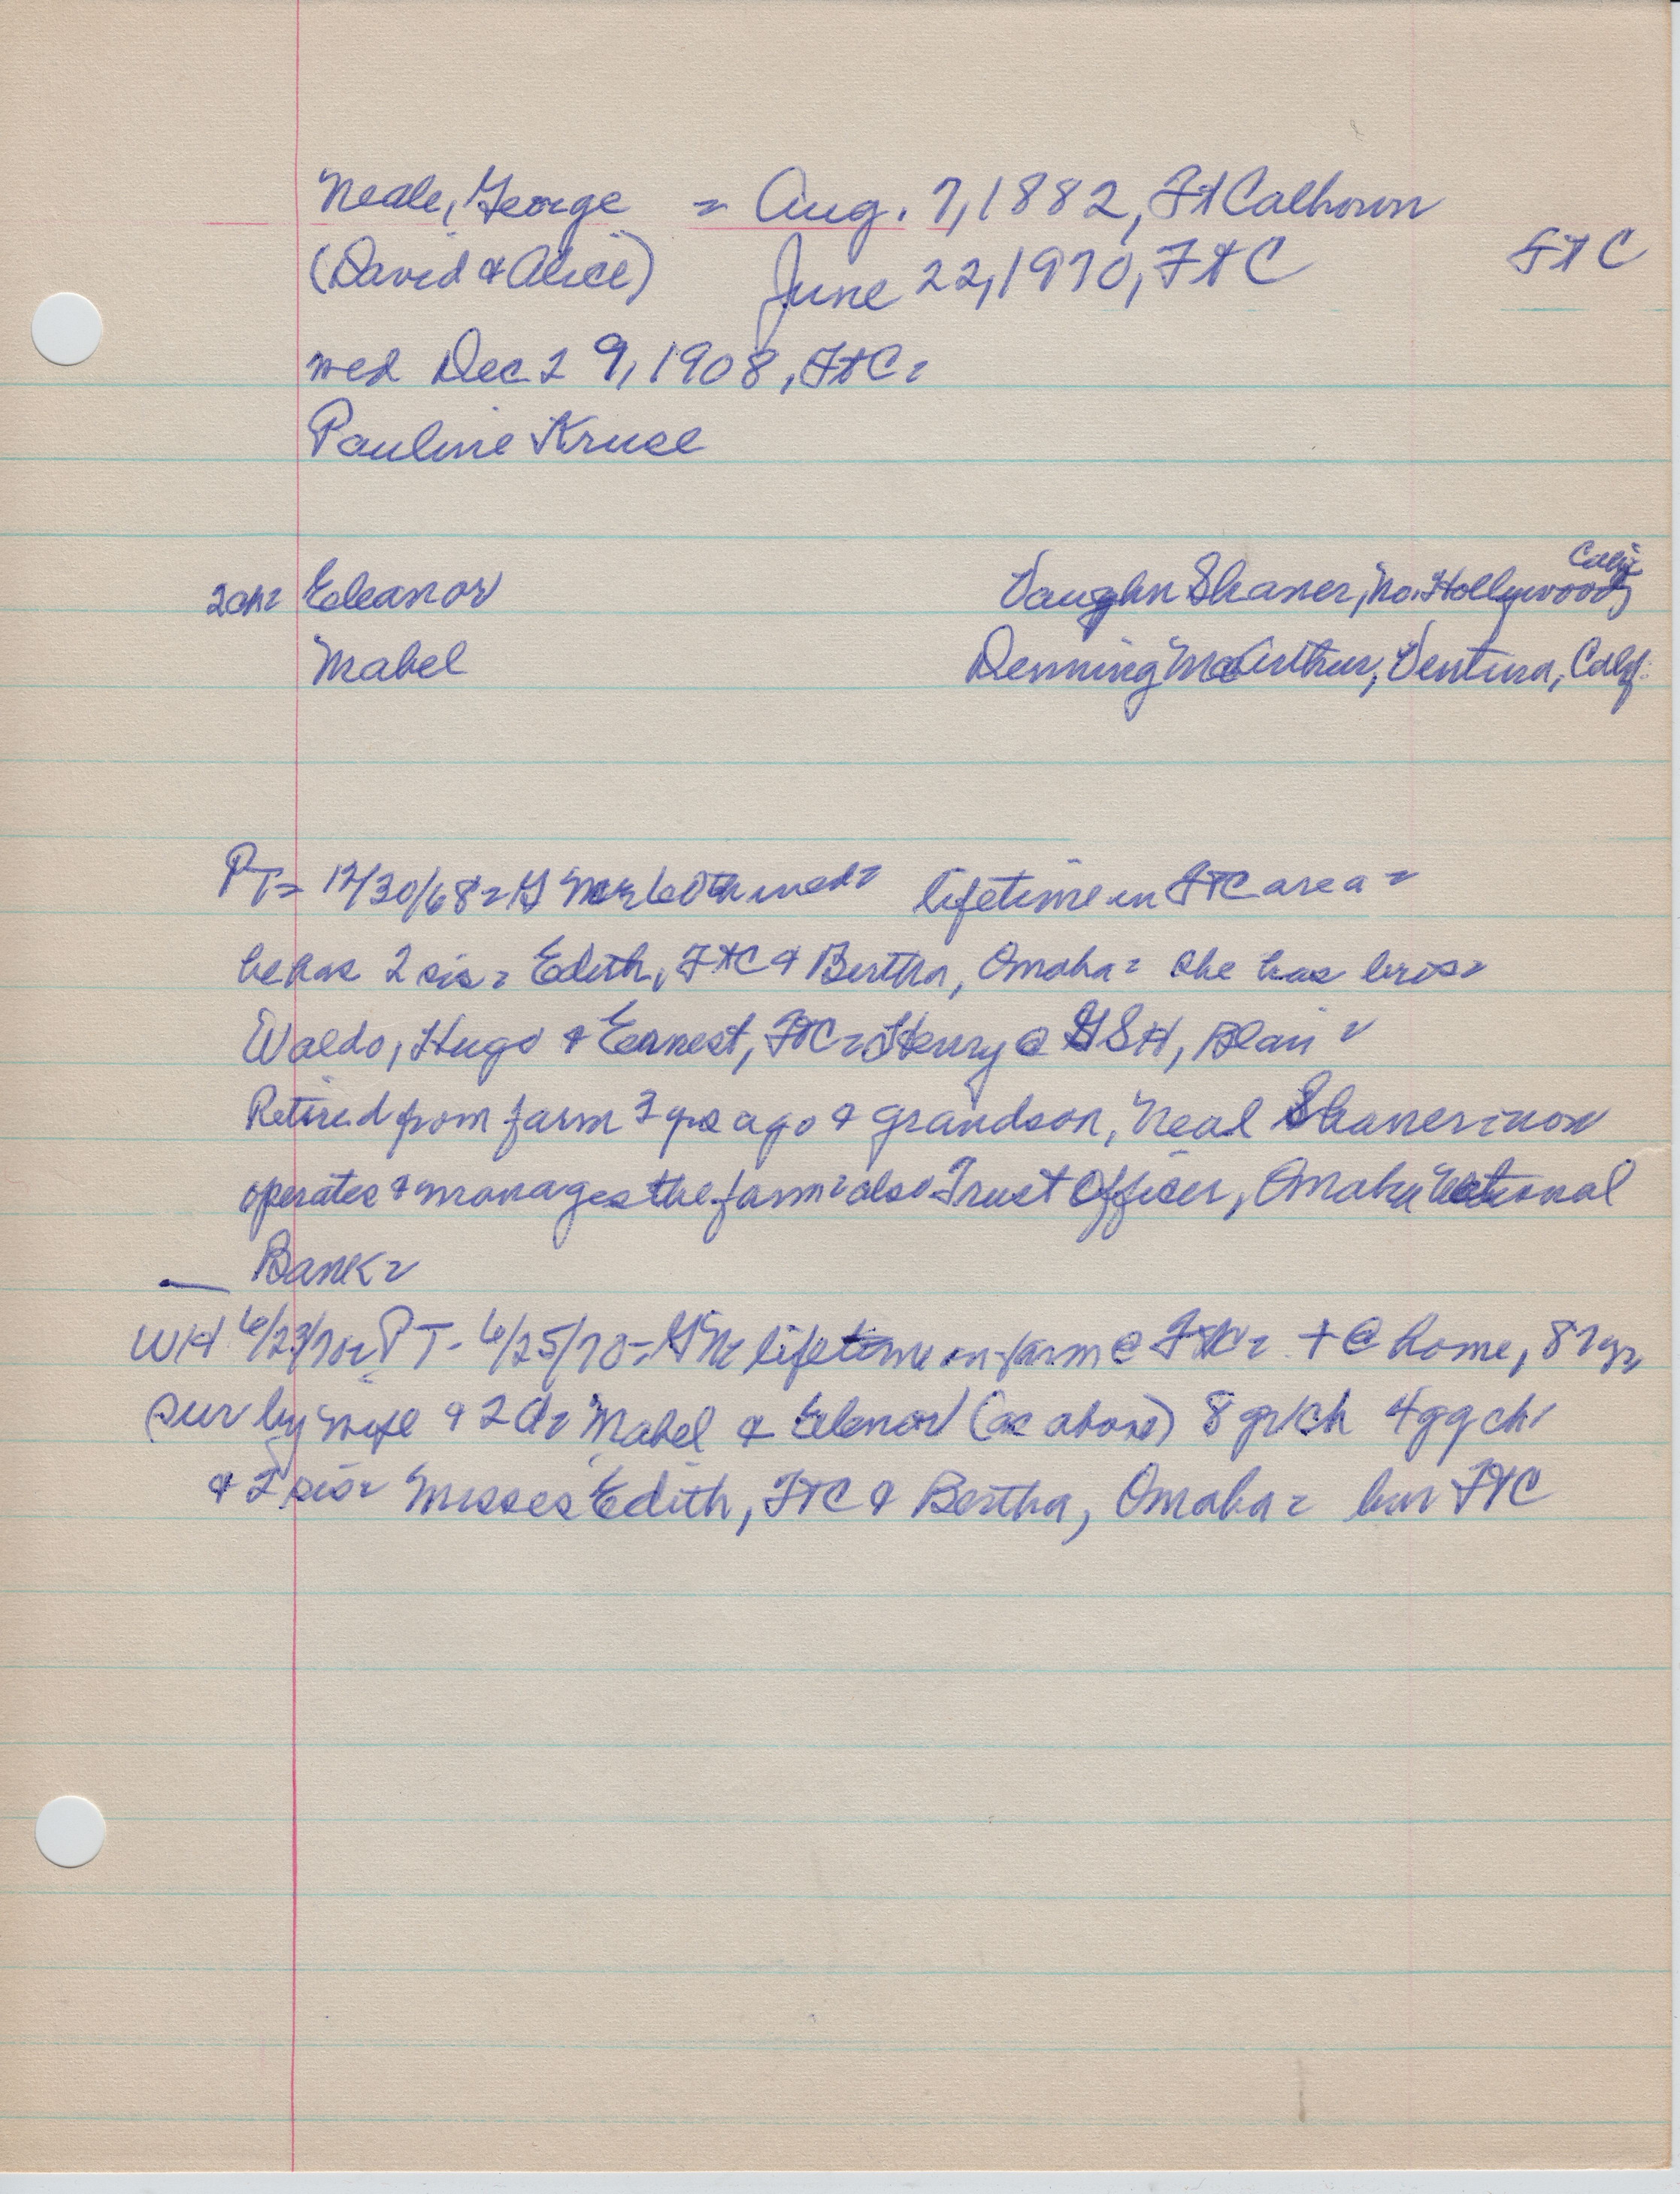 Neale, George = Aug. 7, 1882, Ft Calhoun
(David & Alice) June 22, 1970, FtC FtC
wed Dec 29, 1908, FtC =
Pauline Kruse
2ch= Eleanor Vaughn Shaner, No. Hollywood, Calif
Mabel Denning McArthur, Ventura, Calif.
PT= 12/30/68 = 60th wed = lifetime in FtC area =
he has 2 sis = Edith, FtC & Bertha, Omaha = she has bros =
Waldo, Hugo & Earnest, FtC = Henry @ GSH, Blair =
Retired from farm yrs ago & grandson, Neal Shaner = now
operates & manages the farm = also Trust Officer, Omaha National
Bank =
WH 6/23/70 = PT - 6/25/70 = lifetime on farm @ FtC = + @ home, 87 yr =
sur by wife & 2 d = Mabel & Elenor (as above) 8 gr/ch 4 ggch
& 2 sis = Misses Edith, FtC & Bertha, Omaha = bur FtC